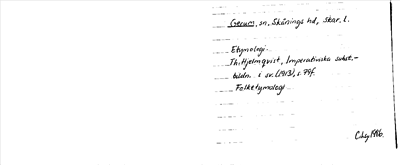 Gerum, sn, Skånings hd, Skar. l.
Etymologi.
Th. Hjelmqvist, Imperativiska subst.-
bildn. i sv. (1913), s. 79f.
Folketymologi
1986.